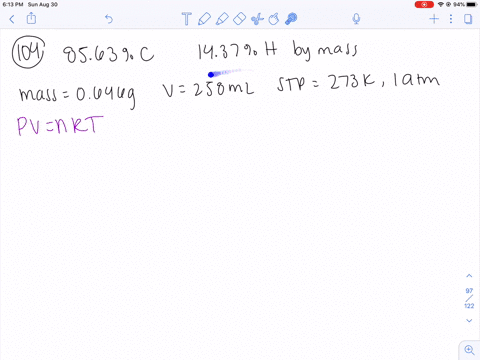 6:13 PM Sun Aug 30
94%
104 85.63% C 14.37% H by mass
mass = 0.646g V = 258mL STP = 273K, 1atm
PV=nRT
97
/
122